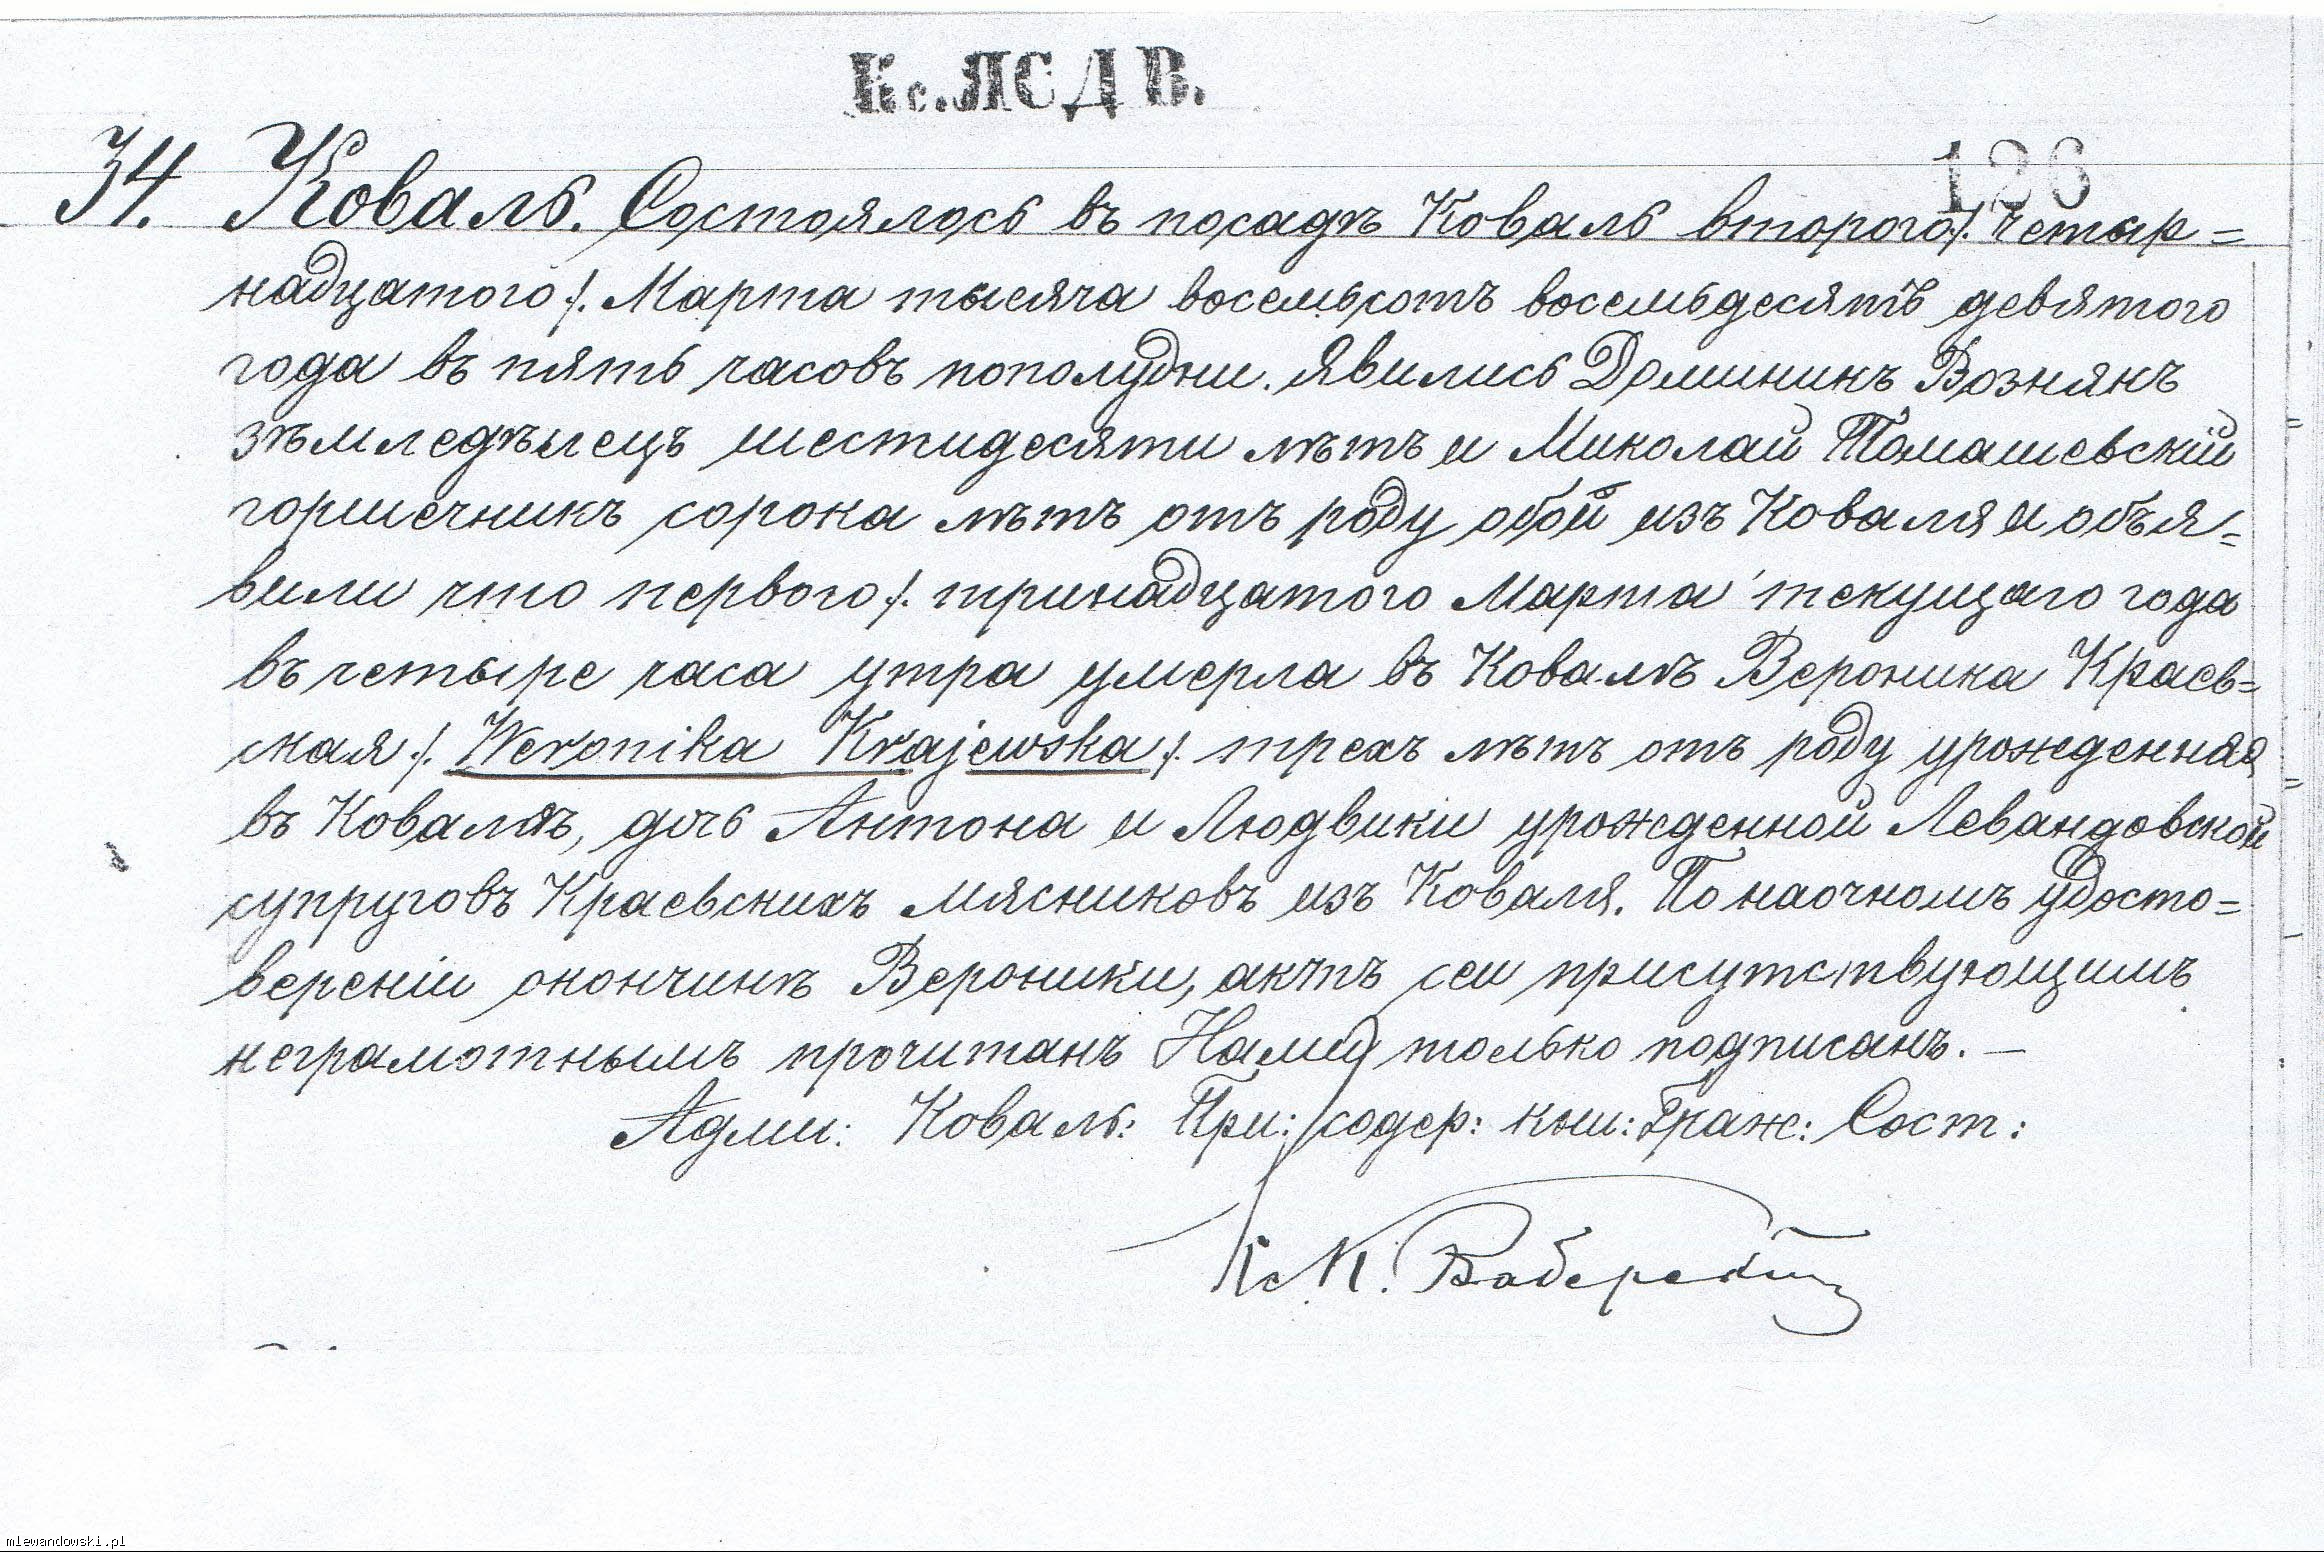 Кс. ЛСДВ.
126
34. Коваль. Состоялось въ посадѣ Коваль второго /. четыр=
надцатого /. Марта тысяча восемьсотъ восемьдесятъ девятого
года въ пять часовъ пополудни. Явились Доминикъ Вознякъ
зѣмледѣлецъ шестидесяти лѣтъ и Миколай Томашевскій
горшечникъ сорока лѣтъ отъ роду обой изъ Коваля и объя=
вили что первого /. тринадцатого Марта текущаго года
въ четыре часа утра умерла въ Ковалѣ Вероника Краев=
ская /. Weronika Krajewska /. трехъ лѣтъ отъ роду урожденная
въ Ковалѣ, дочь Антона и Людвики урожденной Левандовской
супруговъ Краевскихъ мясниковъ изъ Коваля. По наочномъ удосто=
вереніи окончинѣ Вероники, актъ сеи присутствующимъ
неграмотнымъ прочитанъ Нами только подписанъ. —
Адми: Коваль: При: содер: кни: Граж: Сост:
Кс К.
mlewandowski.pl